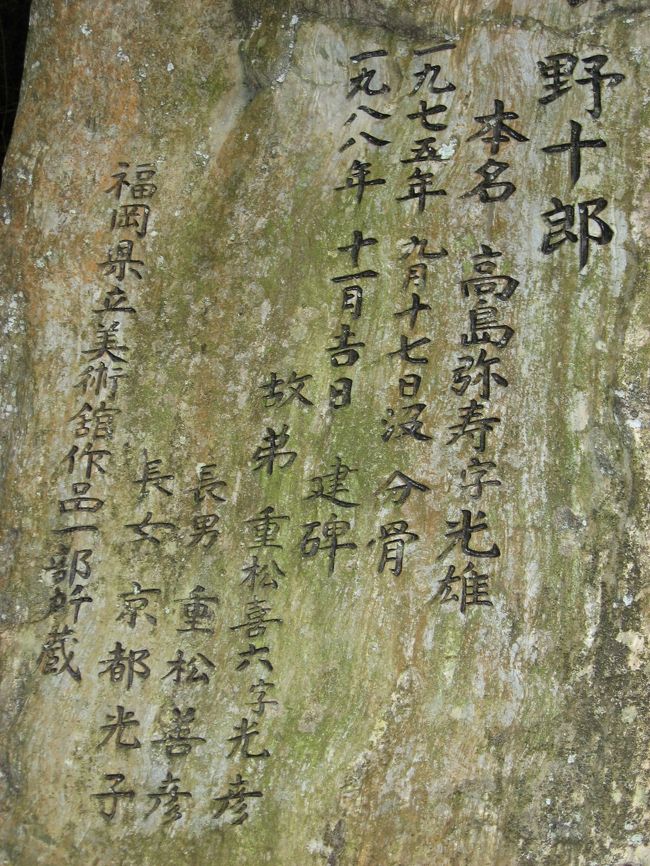 野十郎
本名 高島弥寿字光雄
一九七五年 九月十七日没 分骨
一九八八年 十一月吉日 建碑
故弟 重松喜六字光彦
長男 重松善彦
長女 京都光子
福岡県立美術舘作品一部所蔵